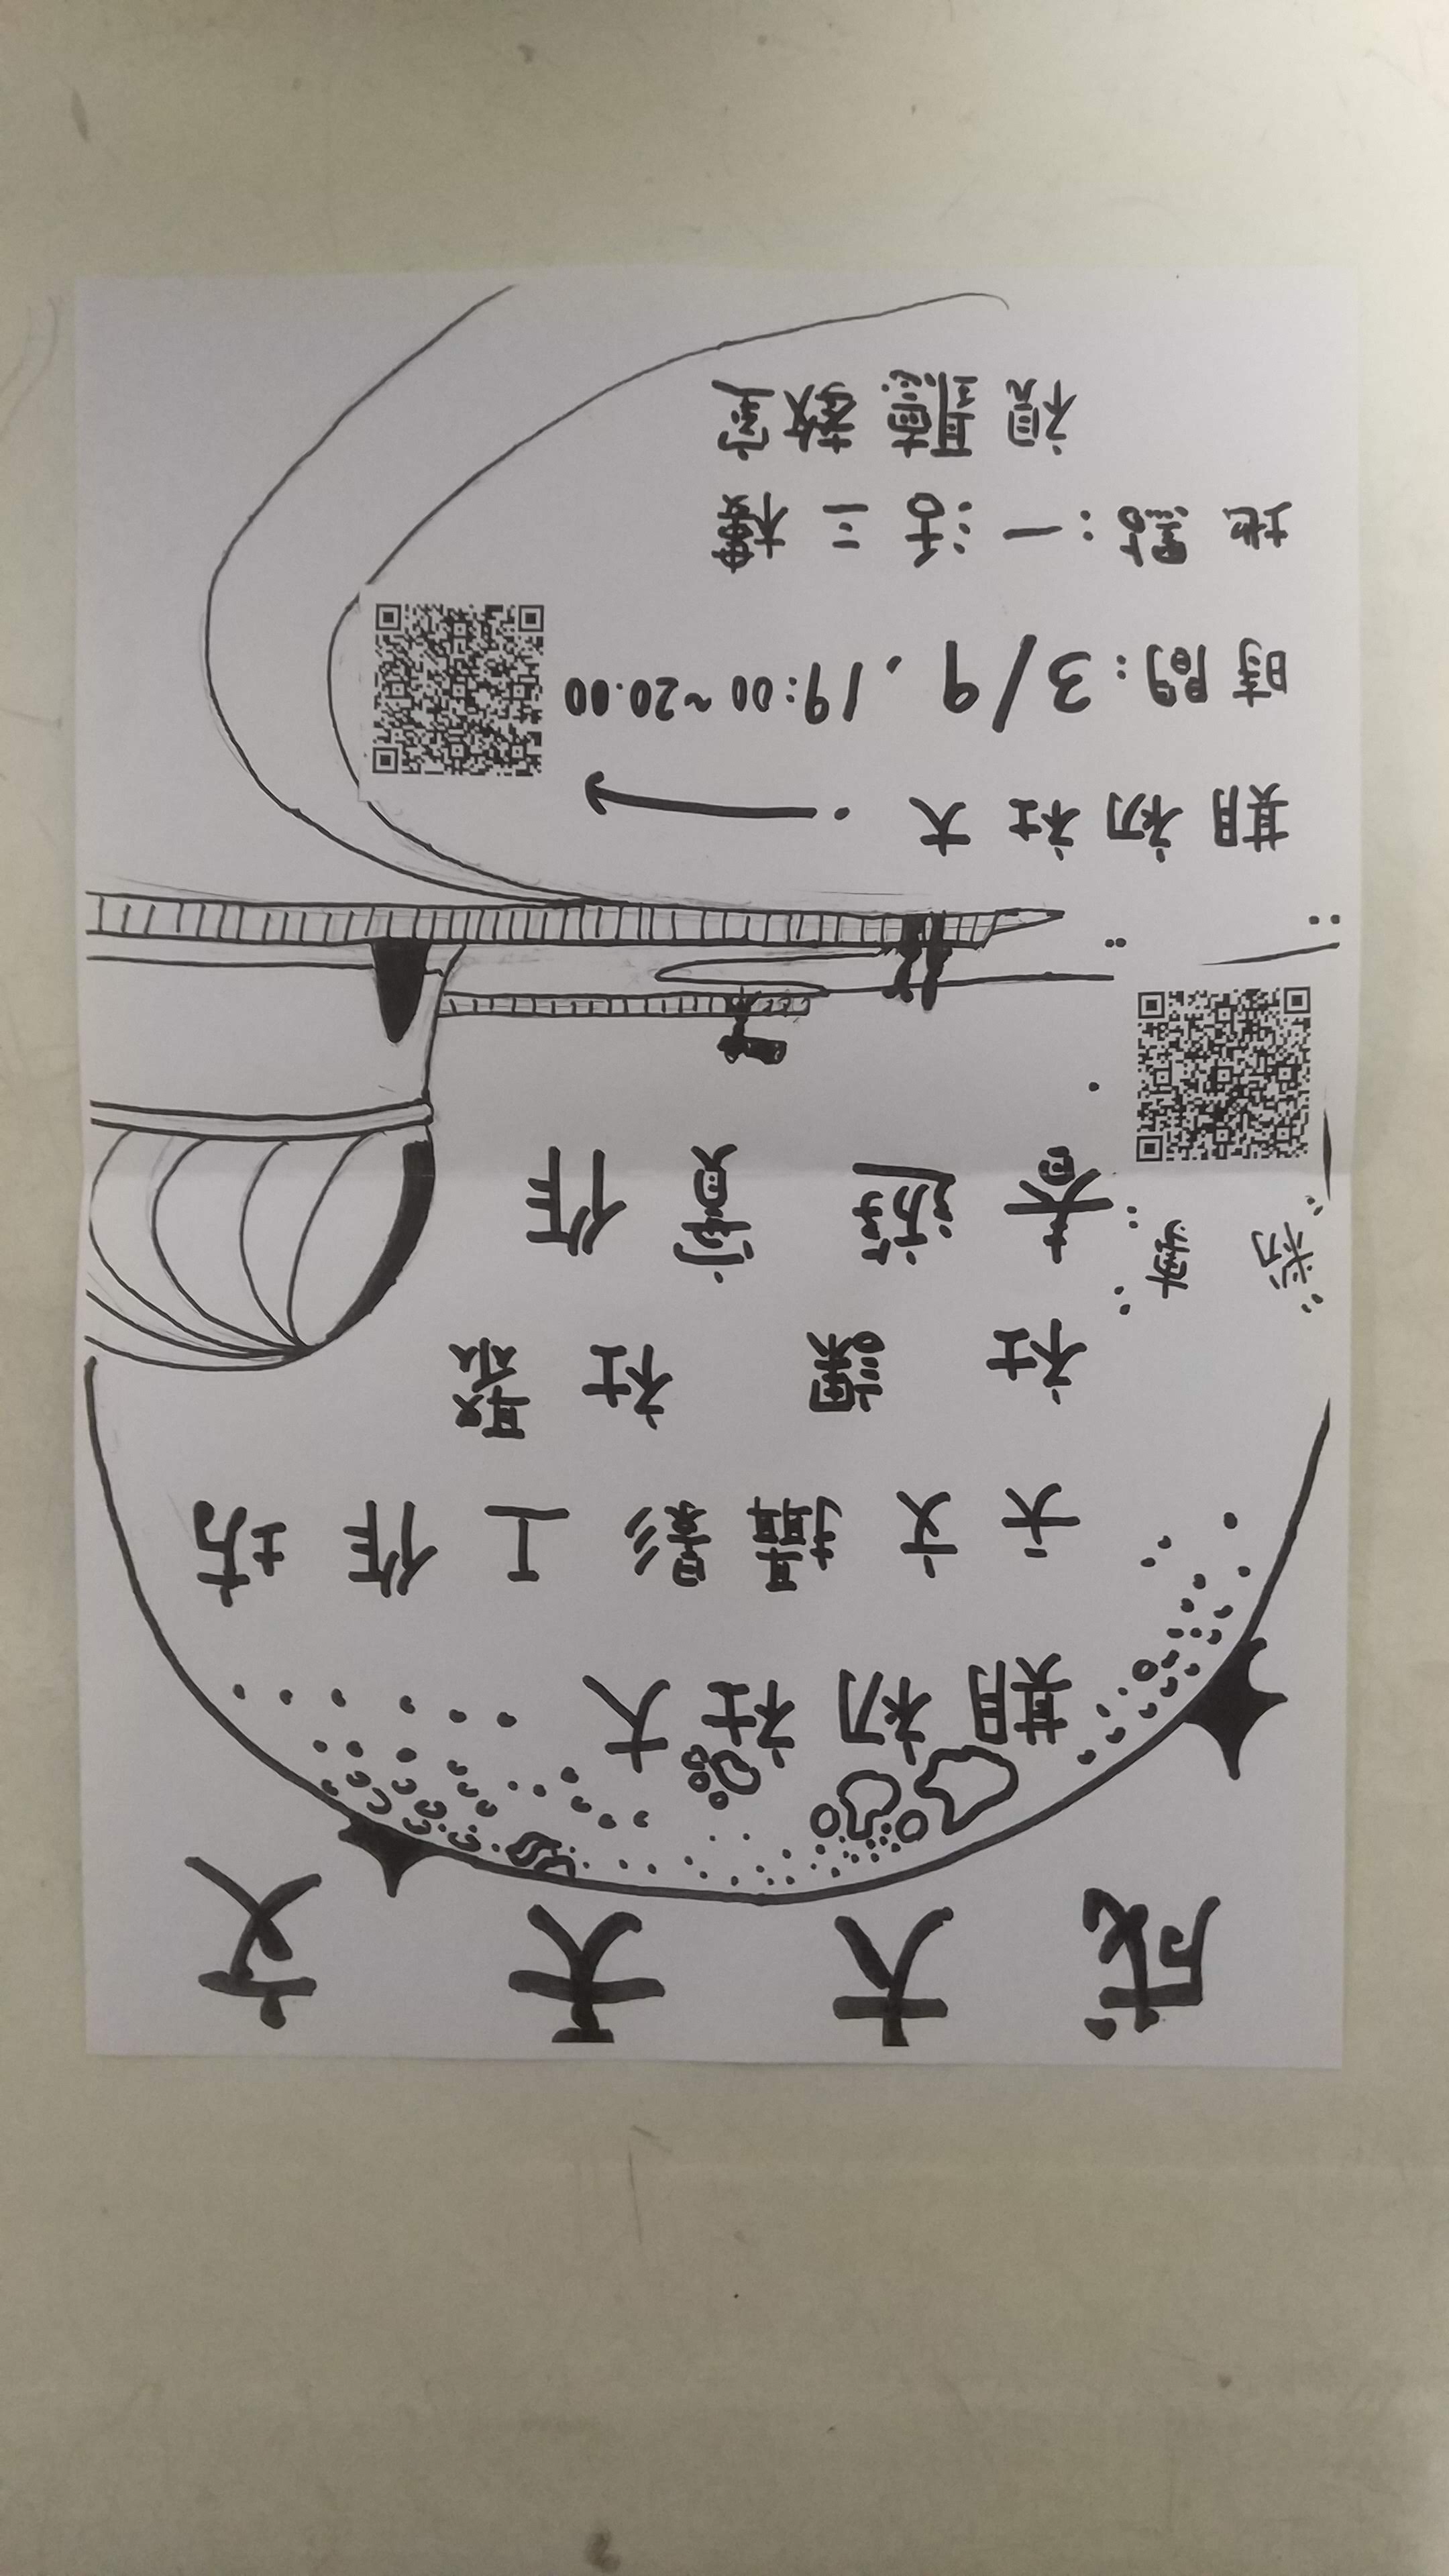 成大天文
期初社大
天文攝影工作坊
社課 社聚
春遊 實作
粉專
期初社大.
時間:3/9, 19:00~20:00
地點:一活三樓
視聽教室